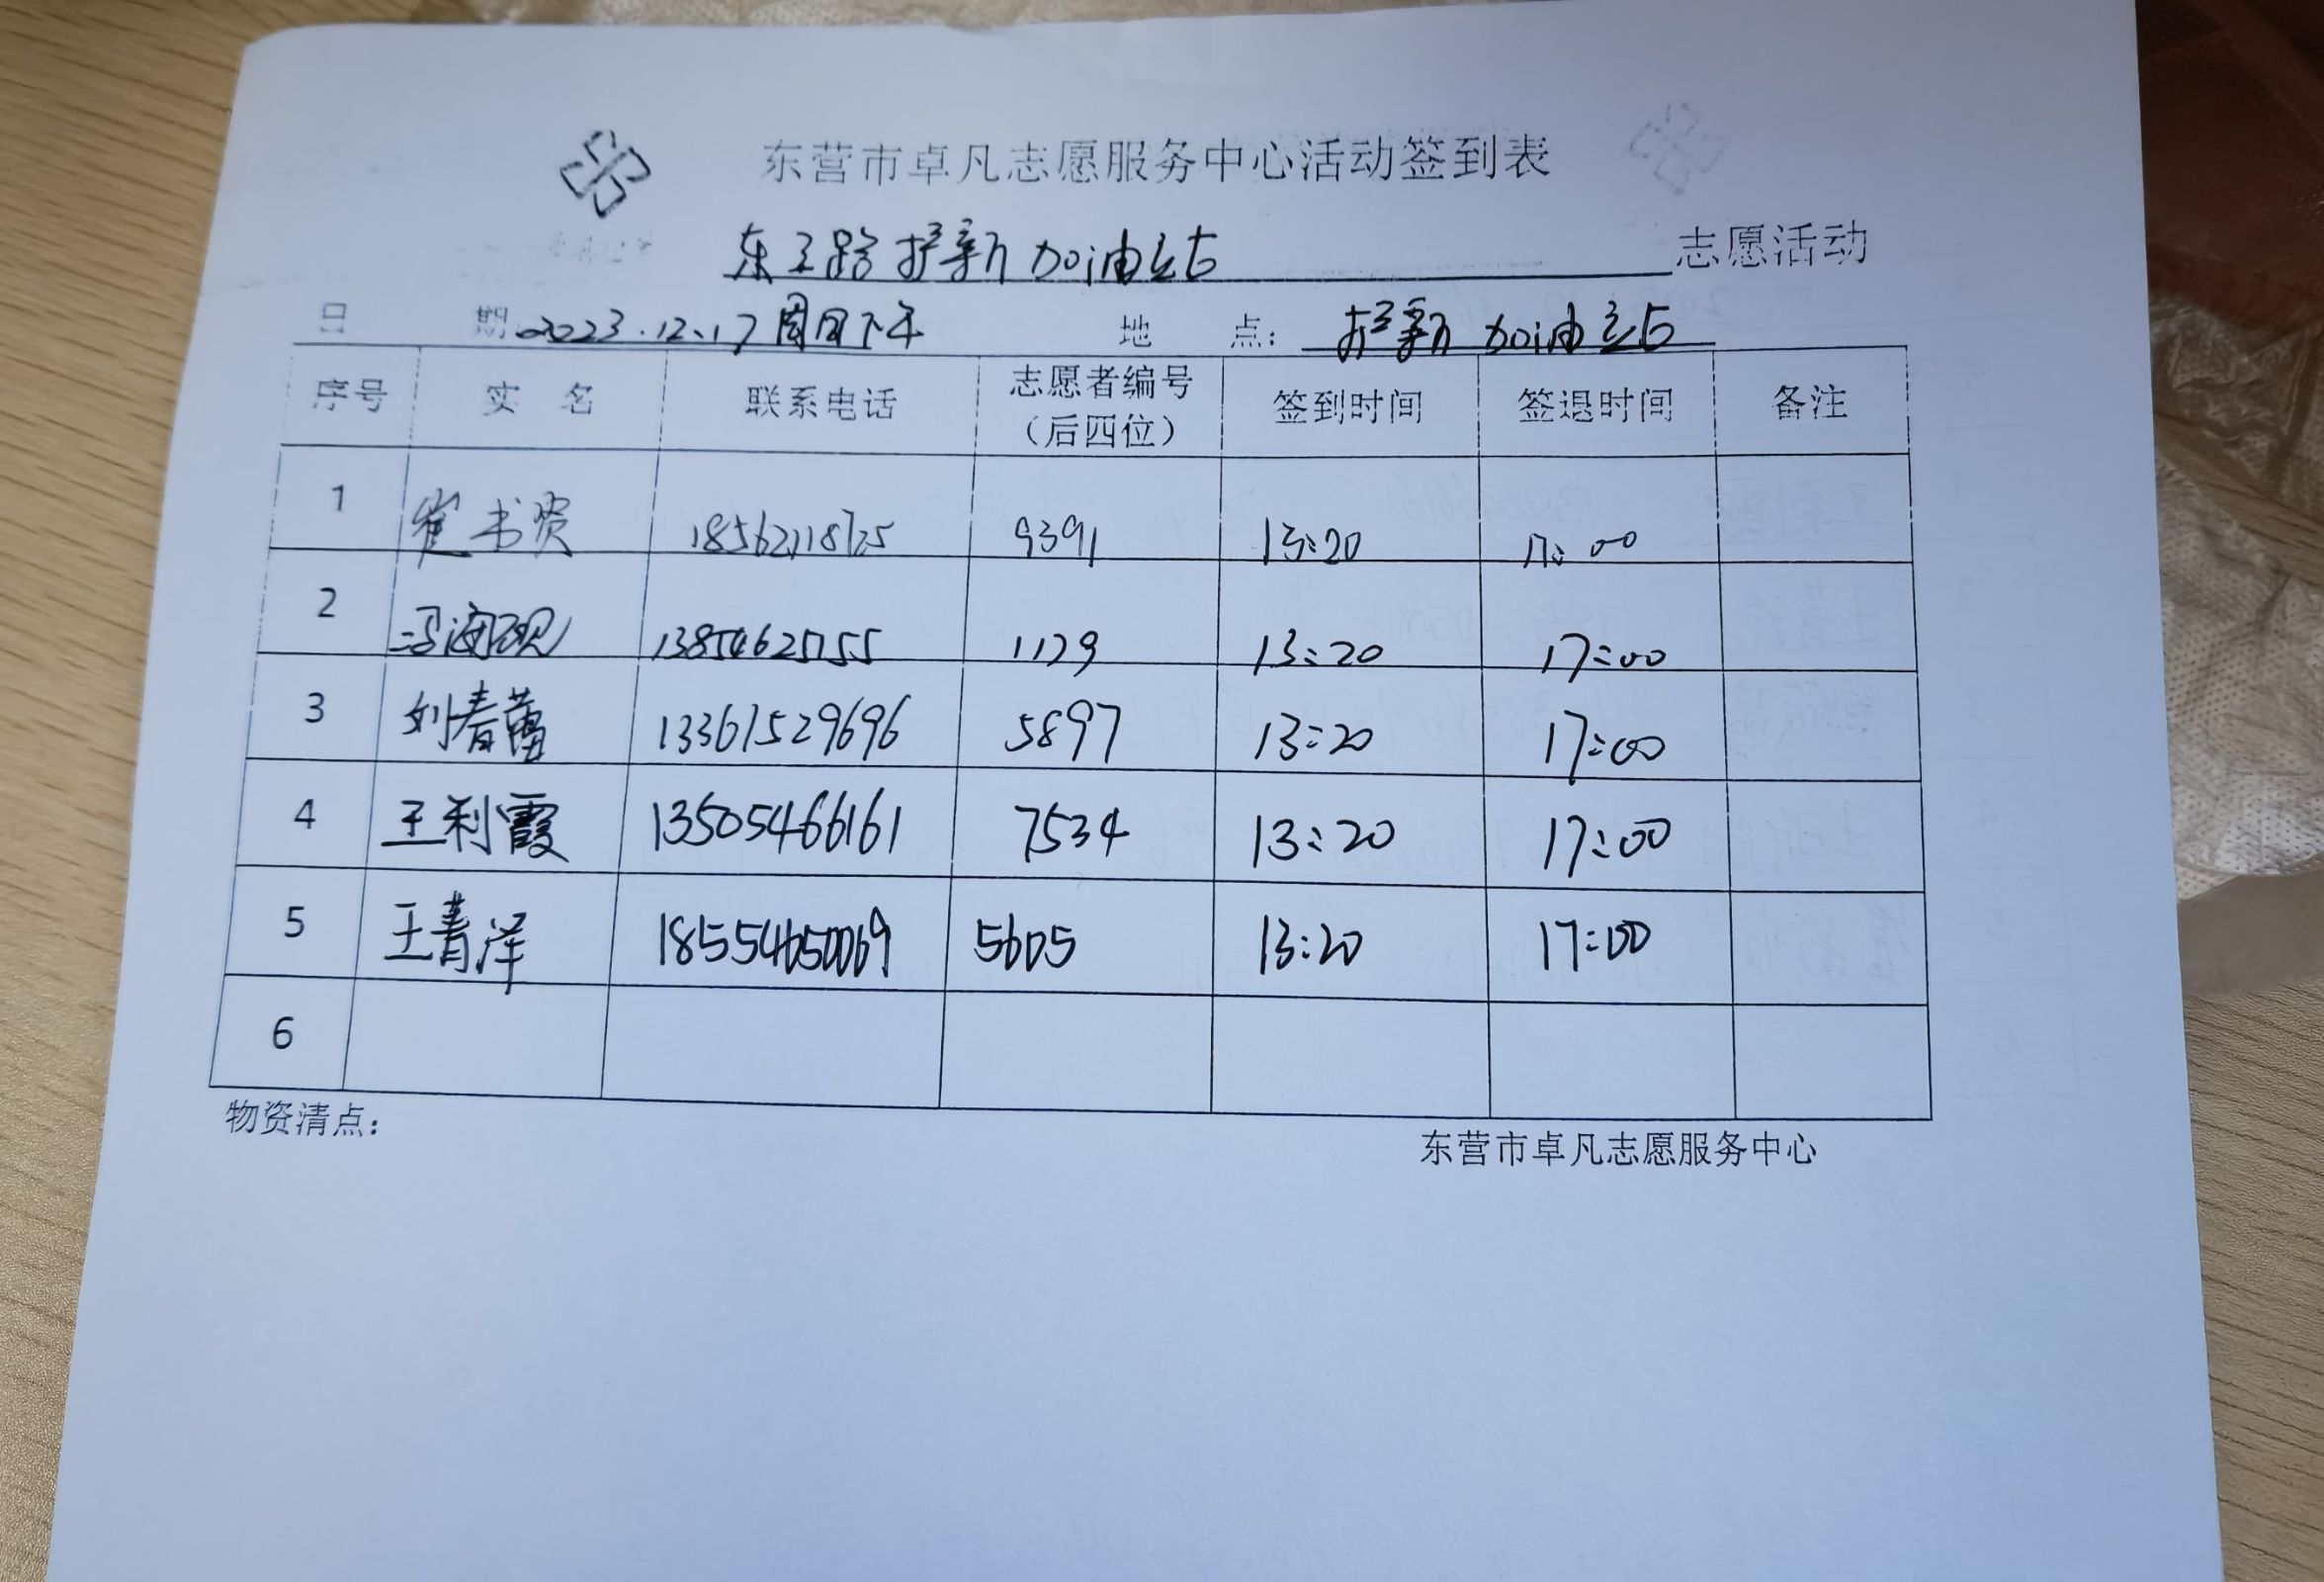 东营市卓凡志愿服务中心活动签到表
东三路护新加油站 志愿活动
日 期: 2023.12.17 周日下午 地 点: 护新加油站
序号 实 名 联系电话 志愿者编号（后四位） 签到时间 签退时间 备注
1 崔书贤 18562118725 9391 13:20 17:00
2 冯海砚 13854625755 1129 13:20 17:00
3 刘春蕾 13361529696 5897 13:20 17:00
4 王利霞 13505466161 7534 13:20 17:00
5 王青洋 18554650069 5605 13:20 17:00
6
物资清点：
东营市卓凡志愿服务中心